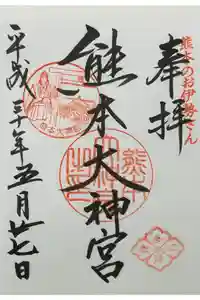 奉拝
熊本のお伊勢さん
熊本大神宮
平成三十年五月廿七日